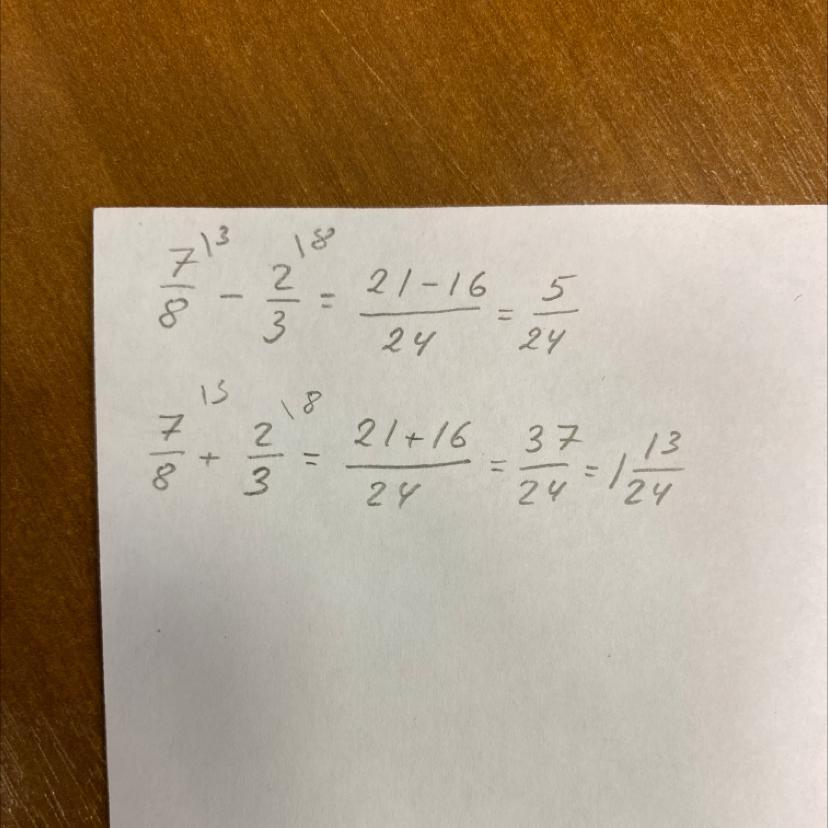 7/8 \3 - 2/3 \8 = 21-16/24 = 5/24
7/8 \3 + 2/3 \8 = 21+16/24 = 37/24 = 1 13/24